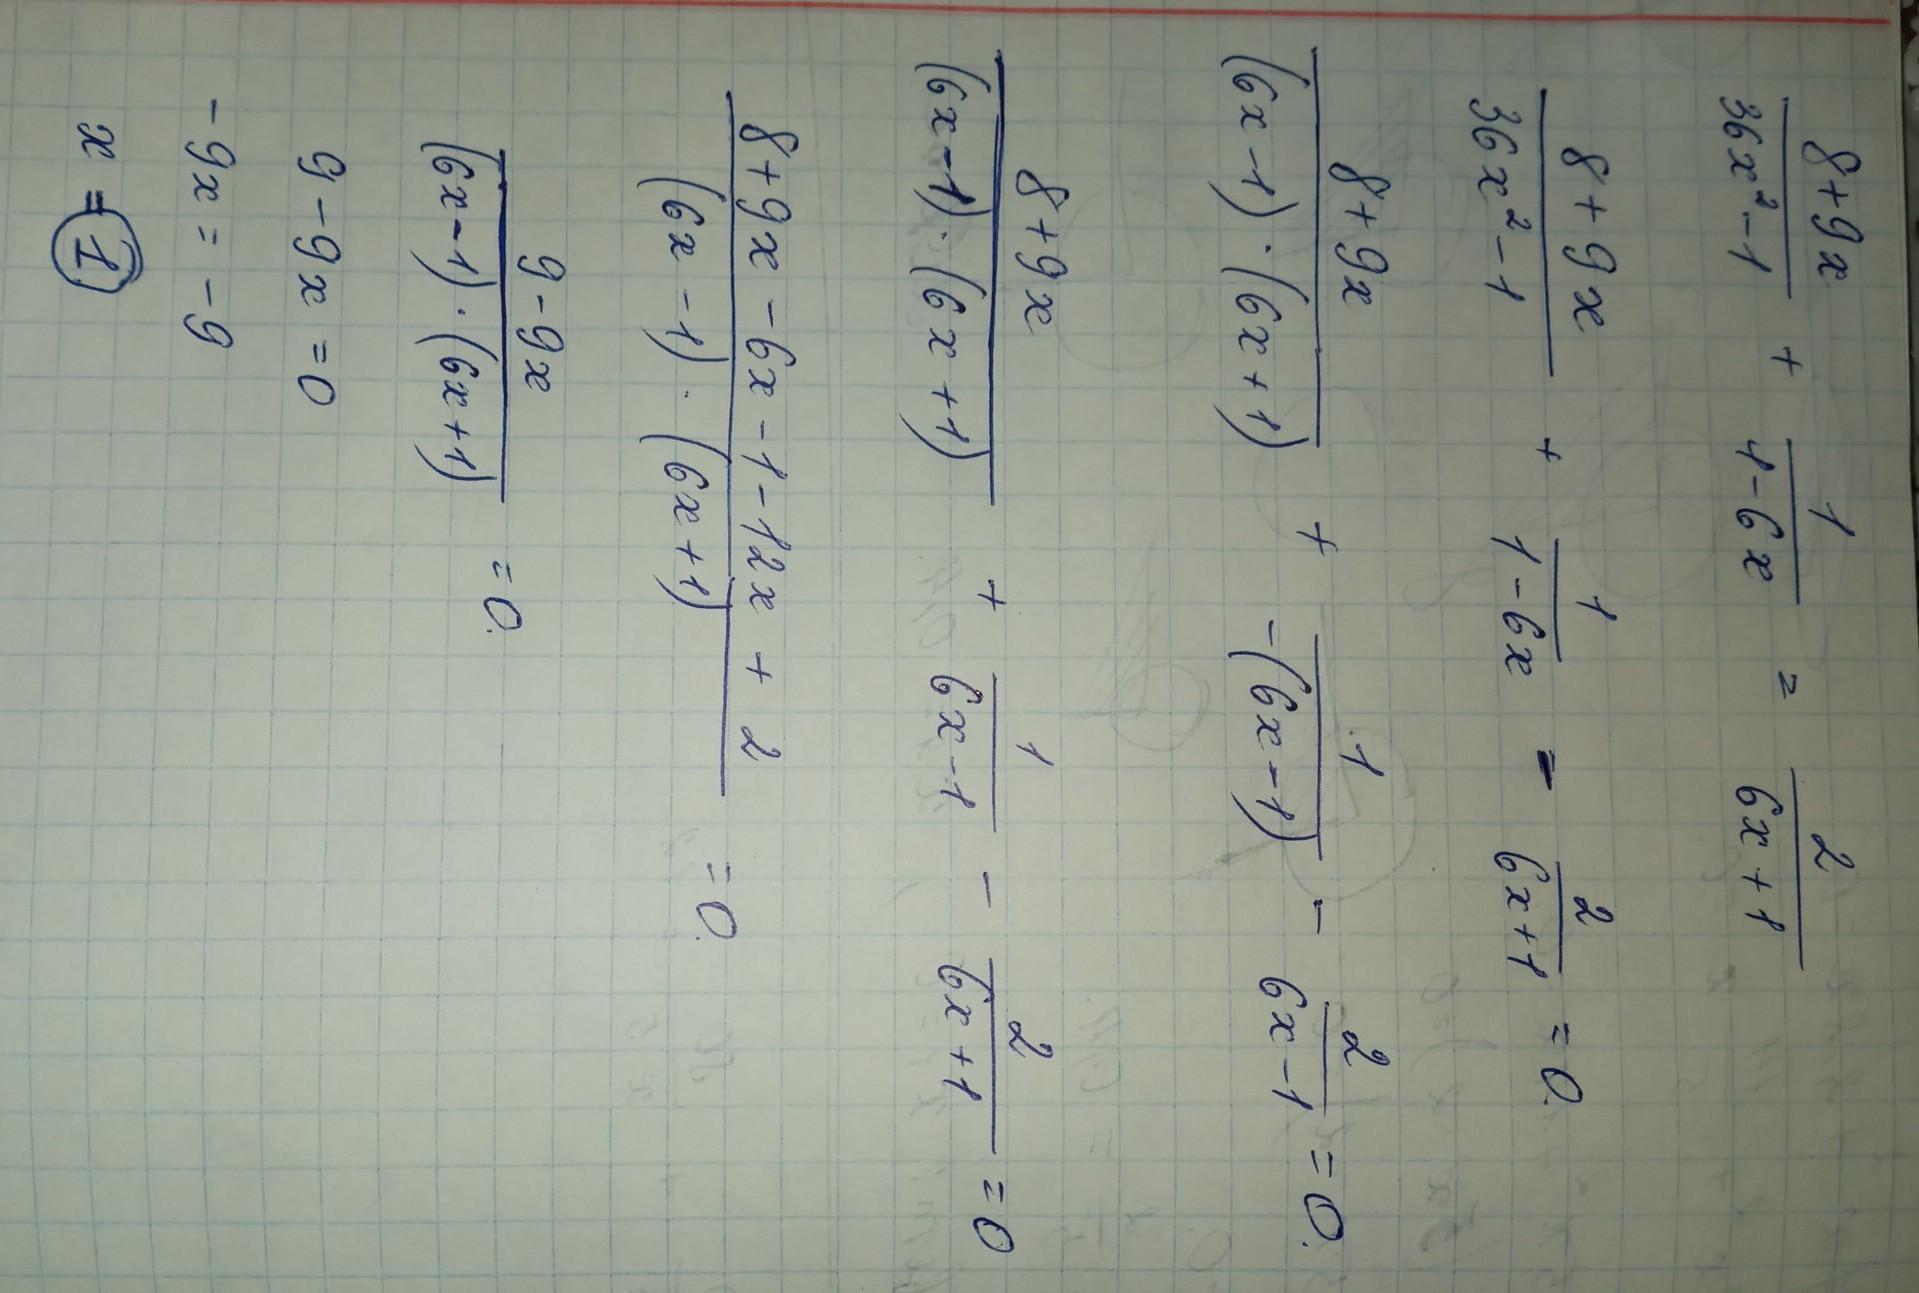 (8+9x)/(36x²-1) + 1/(1-6x) = 2/(6x+1)
(8+9x)/(36x²-1) + 1/(1-6x) = 2/(6x+1) = 0.
(8+9x)/((6x-1)·(6x+1)) + 1/(-(6x-1)) - 2/(6x-1) = 0.
(8+9x)/((6x-1)·(6x+1)) + 1/(6x-1) - 2/(6x+1) = 0
(8+9x-6x-1-12x+2)/((6x-1)·(6x+1)) = 0.
(9-9x)/((6x-1)·(6x+1)) = 0.
9-9x=0
-9x=-9
x=1